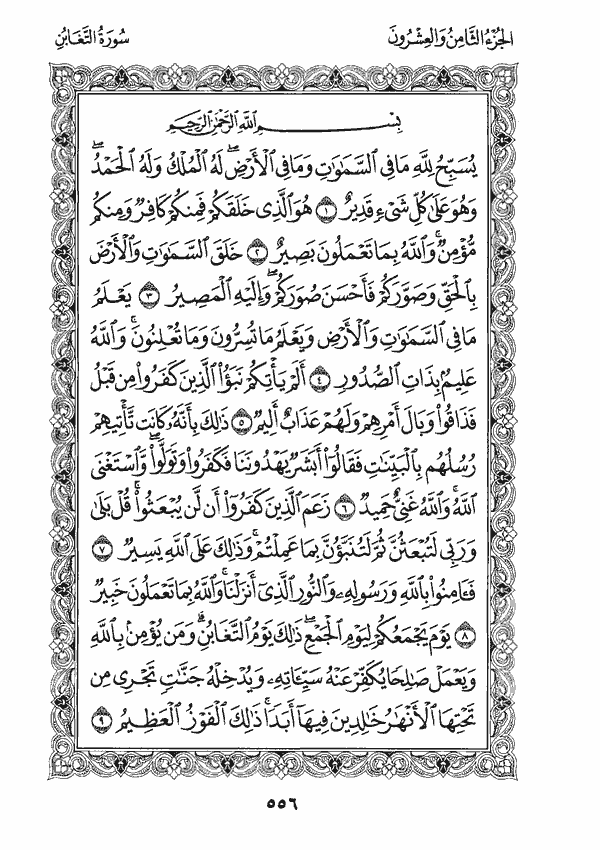 الجُزْءُ الثَّامِنُ وَالعِشْرُونَ
سُورَةُ التَّغَابُنِ
بِسْمِ ٱللَّهِ ٱلرَّحْمَٰنِ ٱلرَّحِيمِ
يُسَبِّحُ لِلَّهِ مَا فِي ٱلسَّمَٰوَٰتِ وَمَا فِي ٱلْأَرْضِۖ لَهُ ٱلْمُلْكُ وَلَهُ ٱلْحَمْدُۖ
وَهُوَ عَلَىٰ كُلِّ شَىْءٍ قَدِيرٌ ١ هُوَ ٱلَّذِى خَلَقَكُمْ فَمِنكُمْ كَافِرٌ وَمِنكُم
مُّؤْمِنٌۚ وَٱللَّهُ بِمَا تَعْمَلُونَ بَصِيرٌ ٢ خَلَقَ ٱلسَّمَٰوَٰتِ وَٱلْأَرْضَ
بِٱلْحَقِّ وَصَوَّرَكُمْ فَأَحْسَنَ صُوَرَكُمْۖ وَإِلَيْهِ ٱلْمَصِيرُ ٣ يَعْلَمُ
مَا فِي ٱلسَّمَٰوَٰتِ وَٱلْأَرْضِ وَيَعْلَمُ مَا تُسِرُّونَ وَمَا تُعْلِنُونَۚ وَٱللَّهُ
عَلِيمٌۢ بِذَاتِ ٱلصُّدُورِ ٤ أَلَمْ يَأْتِكُمْ نَبَؤُا۟ ٱلَّذِينَ كَفَرُوا۟ مِن قَبْلُ
فَذَاقُوا۟ وَبَالَ أَمْرِهِمْ وَلَهُمْ عَذَابٌ أَلِيمٌ ٥ ذَٰلِكَ بِأَنَّهُۥ كَانَت تَّأْتِيهِمْ
رُسُلُهُم بِٱلْبَيِّنَٰتِ فَقَالُوٓا۟ أَبَشَرٌ يَهْدُونَنَا فَكَفَرُوا۟ وَتَوَلَّوا۟ۖ وَّٱسْتَغْنَى
ٱللَّهُۚ وَٱللَّهُ غَنِىٌّ حَمِيدٌ ٦ زَعَمَ ٱلَّذِينَ كَفَرُوٓا۟ أَن لَّن يُبْعَثُوا۟ۚ قُلْ بَلَىٰ
وَرَبِّى لَتُبْعَثُنَّ ثُمَّ لَتُنَبَّؤُنَّ بِمَا عَمِلْتُمْۚ وَذَٰلِكَ عَلَى ٱللَّهِ يَسِيرٌ ٧
فَـَٔامِنُوا۟ بِٱللَّهِ وَرَسُولِهِۦ وَٱلنُّورِ ٱلَّذِىٓ أَنزَلْنَاۚ وَٱللَّهُ بِمَا تَعْمَلُونَ خَبِيرٌ
٨ يَوْمَ يَجْمَعُكُمْ لِيَوْمِ ٱلْجَمْعِۖ ذَٰلِكَ يَوْمُ ٱلتَّغَابُنِۗ وَمَن يُؤْمِنۢ بِٱللَّهِ
وَيَعْمَلْ صَٰلِحًا يُكَفِّرْ عَنْهُ سَيِّـَٔاتِهِۦ وَيُدْخِلْهُ جَنَّٰتٍ تَجْرِى مِن
تَحْتِهَا ٱلْأَنْهَٰرُ خَٰلِدِينَ فِيهَآ أَبَدًاۚ ذَٰلِكَ ٱلْفَوْزُ ٱلْعَظِيمُ ٩
٥٥٦